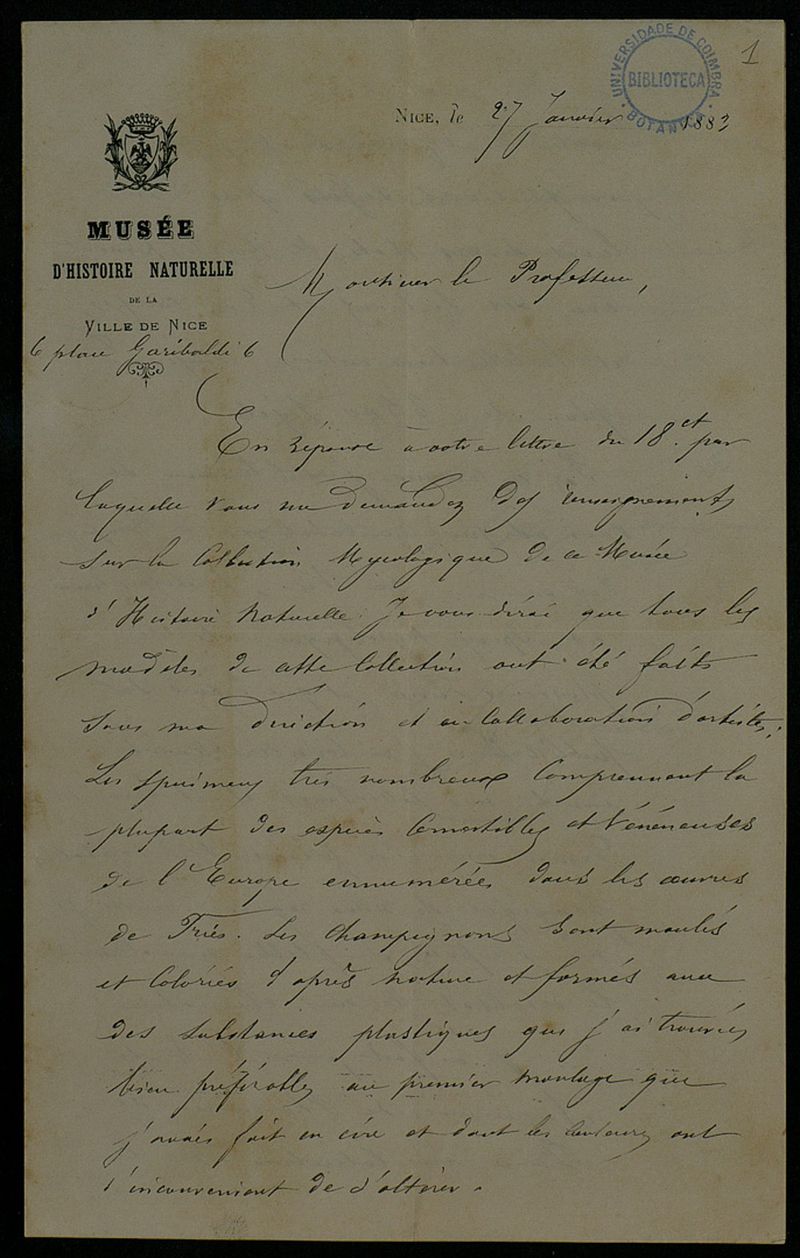 UNIVERSIDADE DE COIMBRA
BIBLIOTECA
BOTANICA
1
NICE, le 27 Janvier 1883
MUSÉE
D'HISTOIRE NATURELLE
DE LA
VILLE DE NICE
6 place Garibaldi 6
Monsieur le Professeur,
En réponse à votre lettre du 18 ct par
laquelle vous me demandez des renseignements
sur la Collection Mycologique de ce Musée
d'Histoire Naturelle. Je vous dirai que tous les
modèles de cette Collection ont été faits
sous ma direction et en Collaboration d'artistes;
Les spécimens très nombreux Comprennent la
plupart des espèces Comestibles et Vénéneuses
de l'Europe ennumérées dans les œuvres
de Friés. Les Champignons sont moulés
et Coloriés d'après nature et formés avec
des substances plastiques que j'ai trouvées
bien préférables au premier moulage que
j'avais fait en cire et dont les couleurs ont
l'inconvenient de s'altérer.